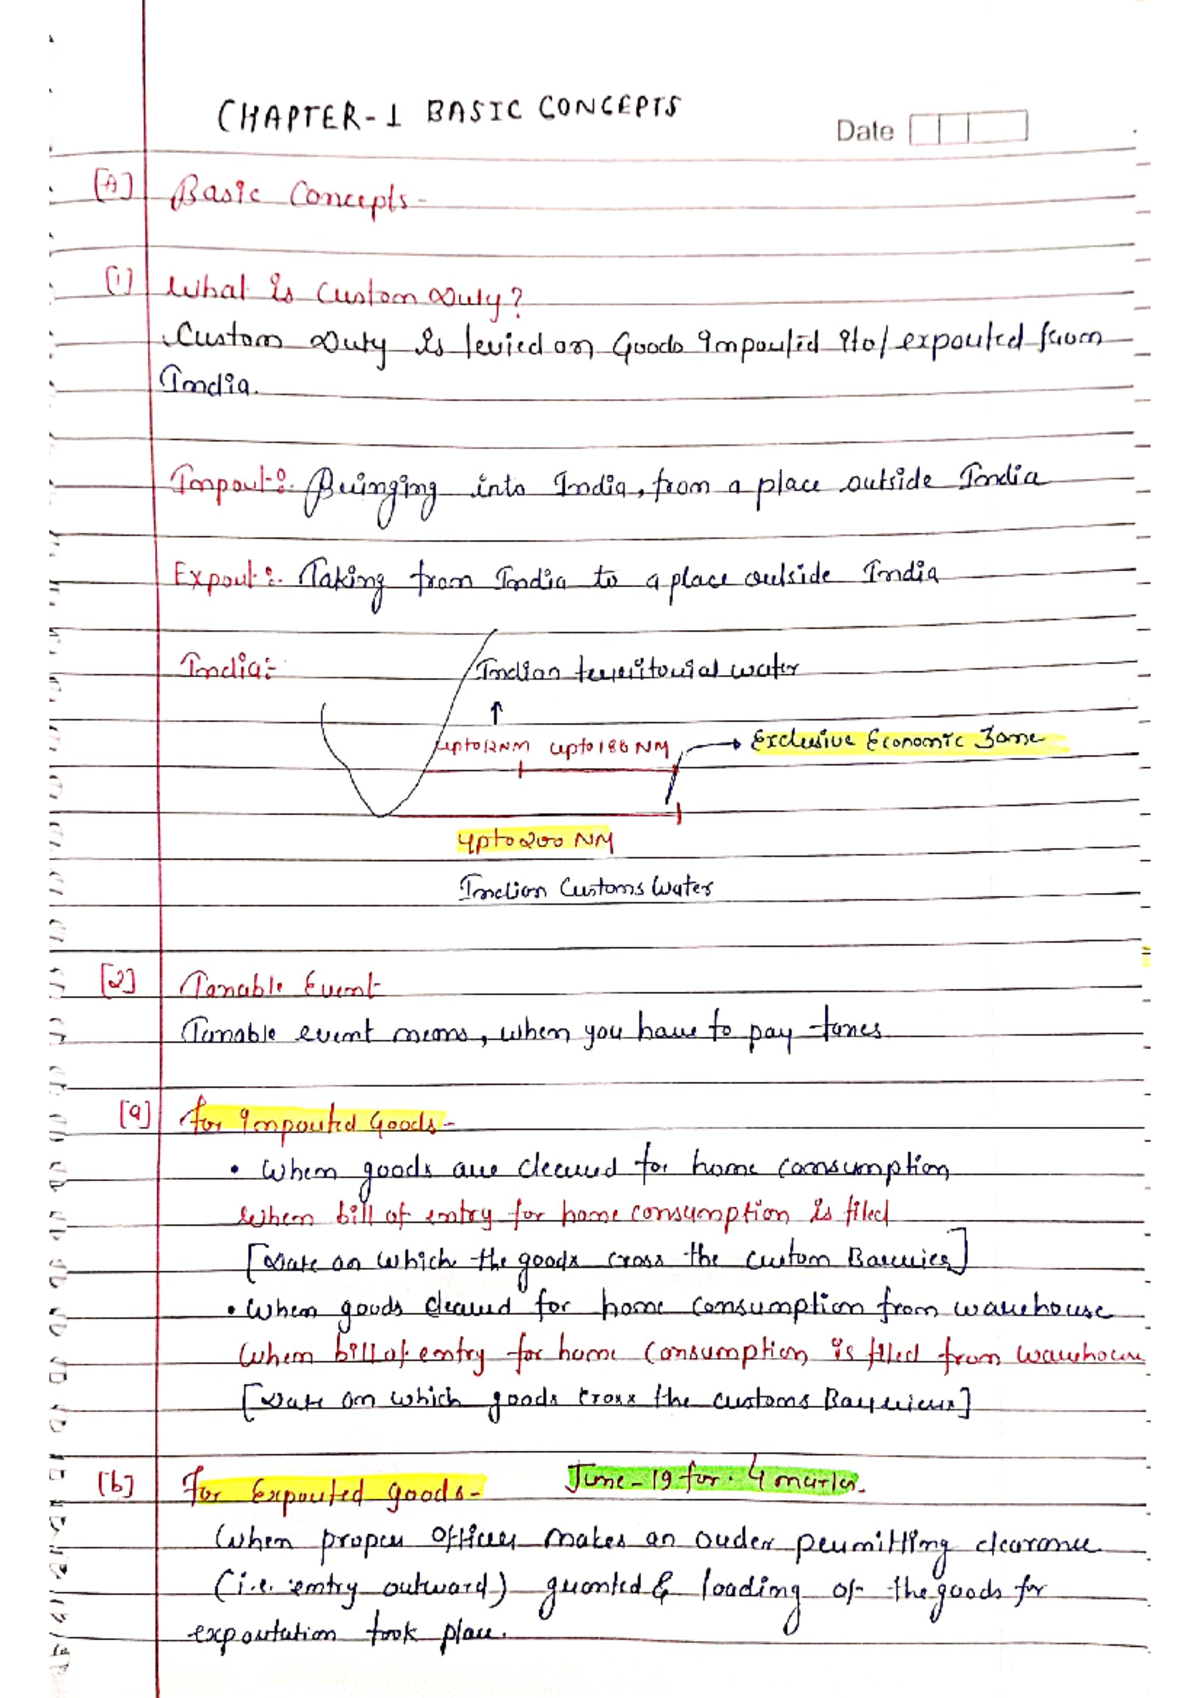 CHAPTER-1 BASIC CONCEPTS
Date
[A] Basic Concepts-
(1) What is Custom Duty?
Custom Duty is levied on Goods Imported ito/exported from
India.
Import:- Bringing into India, from a place outside India
Export:- Taking from India to a place outside India
India:- Indian territorial water
↑
upto 12NM upto 188 NM → Exclusive Economic Zone
upto 200 NM
Indian Customs Water
[2] Taxable Event
Taxable event means, when you have to pay taxes
[a] for Imported Goods-
• When goods are cleared for home consumption
When bill of entry for home consumption is filed
[Date on which the goods cross the custom Barries]
• When goods cleared for home consumption from warehouse
When bill of entry for home consumption is filed from warehouse
[Date on which goods cross the customs Barriers]
(b) For Exported goods- June-19 for 4 marks.
When proper officer makes an order permitting clearance
(i.e. entry outward) granted & loading of the goods for
exportation took place.